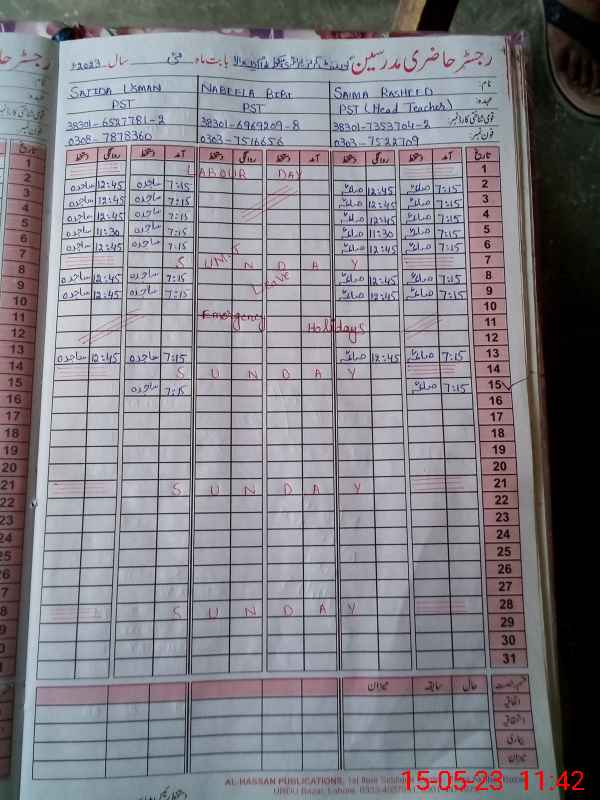 رجسٹر حاضری مدرسین
بابت ماہ مئی سال 2023ء
نام:
SAJIDA USMAN NABEELA BIBI SAIMA RASHEED
عہدہ:
PST PST PST (Head Teacher)
قومی شناختی کارڈ نمبر:
38301-6527781-2 38301-6969209-8 38301-7353704-2
فون نمبر:
0308-7878360 0303-7516656 0303-7522709
تاریخ آمد دستخط روانگی دستخط آمد دستخط روانگی دستخط آمد دستخط روانگی دستخط
1 LABOUR DAY
2 7:15 صائمہ 12:45 صائمہ 7:15 ساجدہ 12:45 ساجدہ
3 7:15 صائمہ 12:45 صائمہ 7:15 ساجدہ 12:45 ساجدہ
4 7:15 صائمہ 12:45 صائمہ 7:15 ساجدہ 12:45 ساجدہ
5 7:15 صائمہ 11:30 صائمہ 7:15 ساجدہ 11:30 ساجدہ
6 7:15 صائمہ 12:45 صائمہ 7:15 ساجدہ 12:45 ساجدہ
7 SUNDAY
8 7:15 صائمہ 12:45 صائمہ Leave 7:15 ساجدہ 12:45 ساجدہ
9 7:15 صائمہ 12:45 صائمہ 7:15 ساجدہ 12:45 ساجدہ
10 Emergency
11 Holidays
12
13 7:15 صائمہ 12:45 صائمہ 7:15 ساجدہ 12:45 ساجدہ
14 SUNDAY
15 7:15 صائمہ 7:15 ساجدہ
16
17
18
19
20
21 SUNDAY
22
23
24
25
26
27
28 SUNDAY
29
30
31
قسم رخصت حال سابقہ میزان
اتفاقیہ
استحقاقیہ
بیماری
میزان
AL-HASSAN PUBLICATIONS, 1st floor
URDU Bazar, Lahore.
15-05-23 11:42